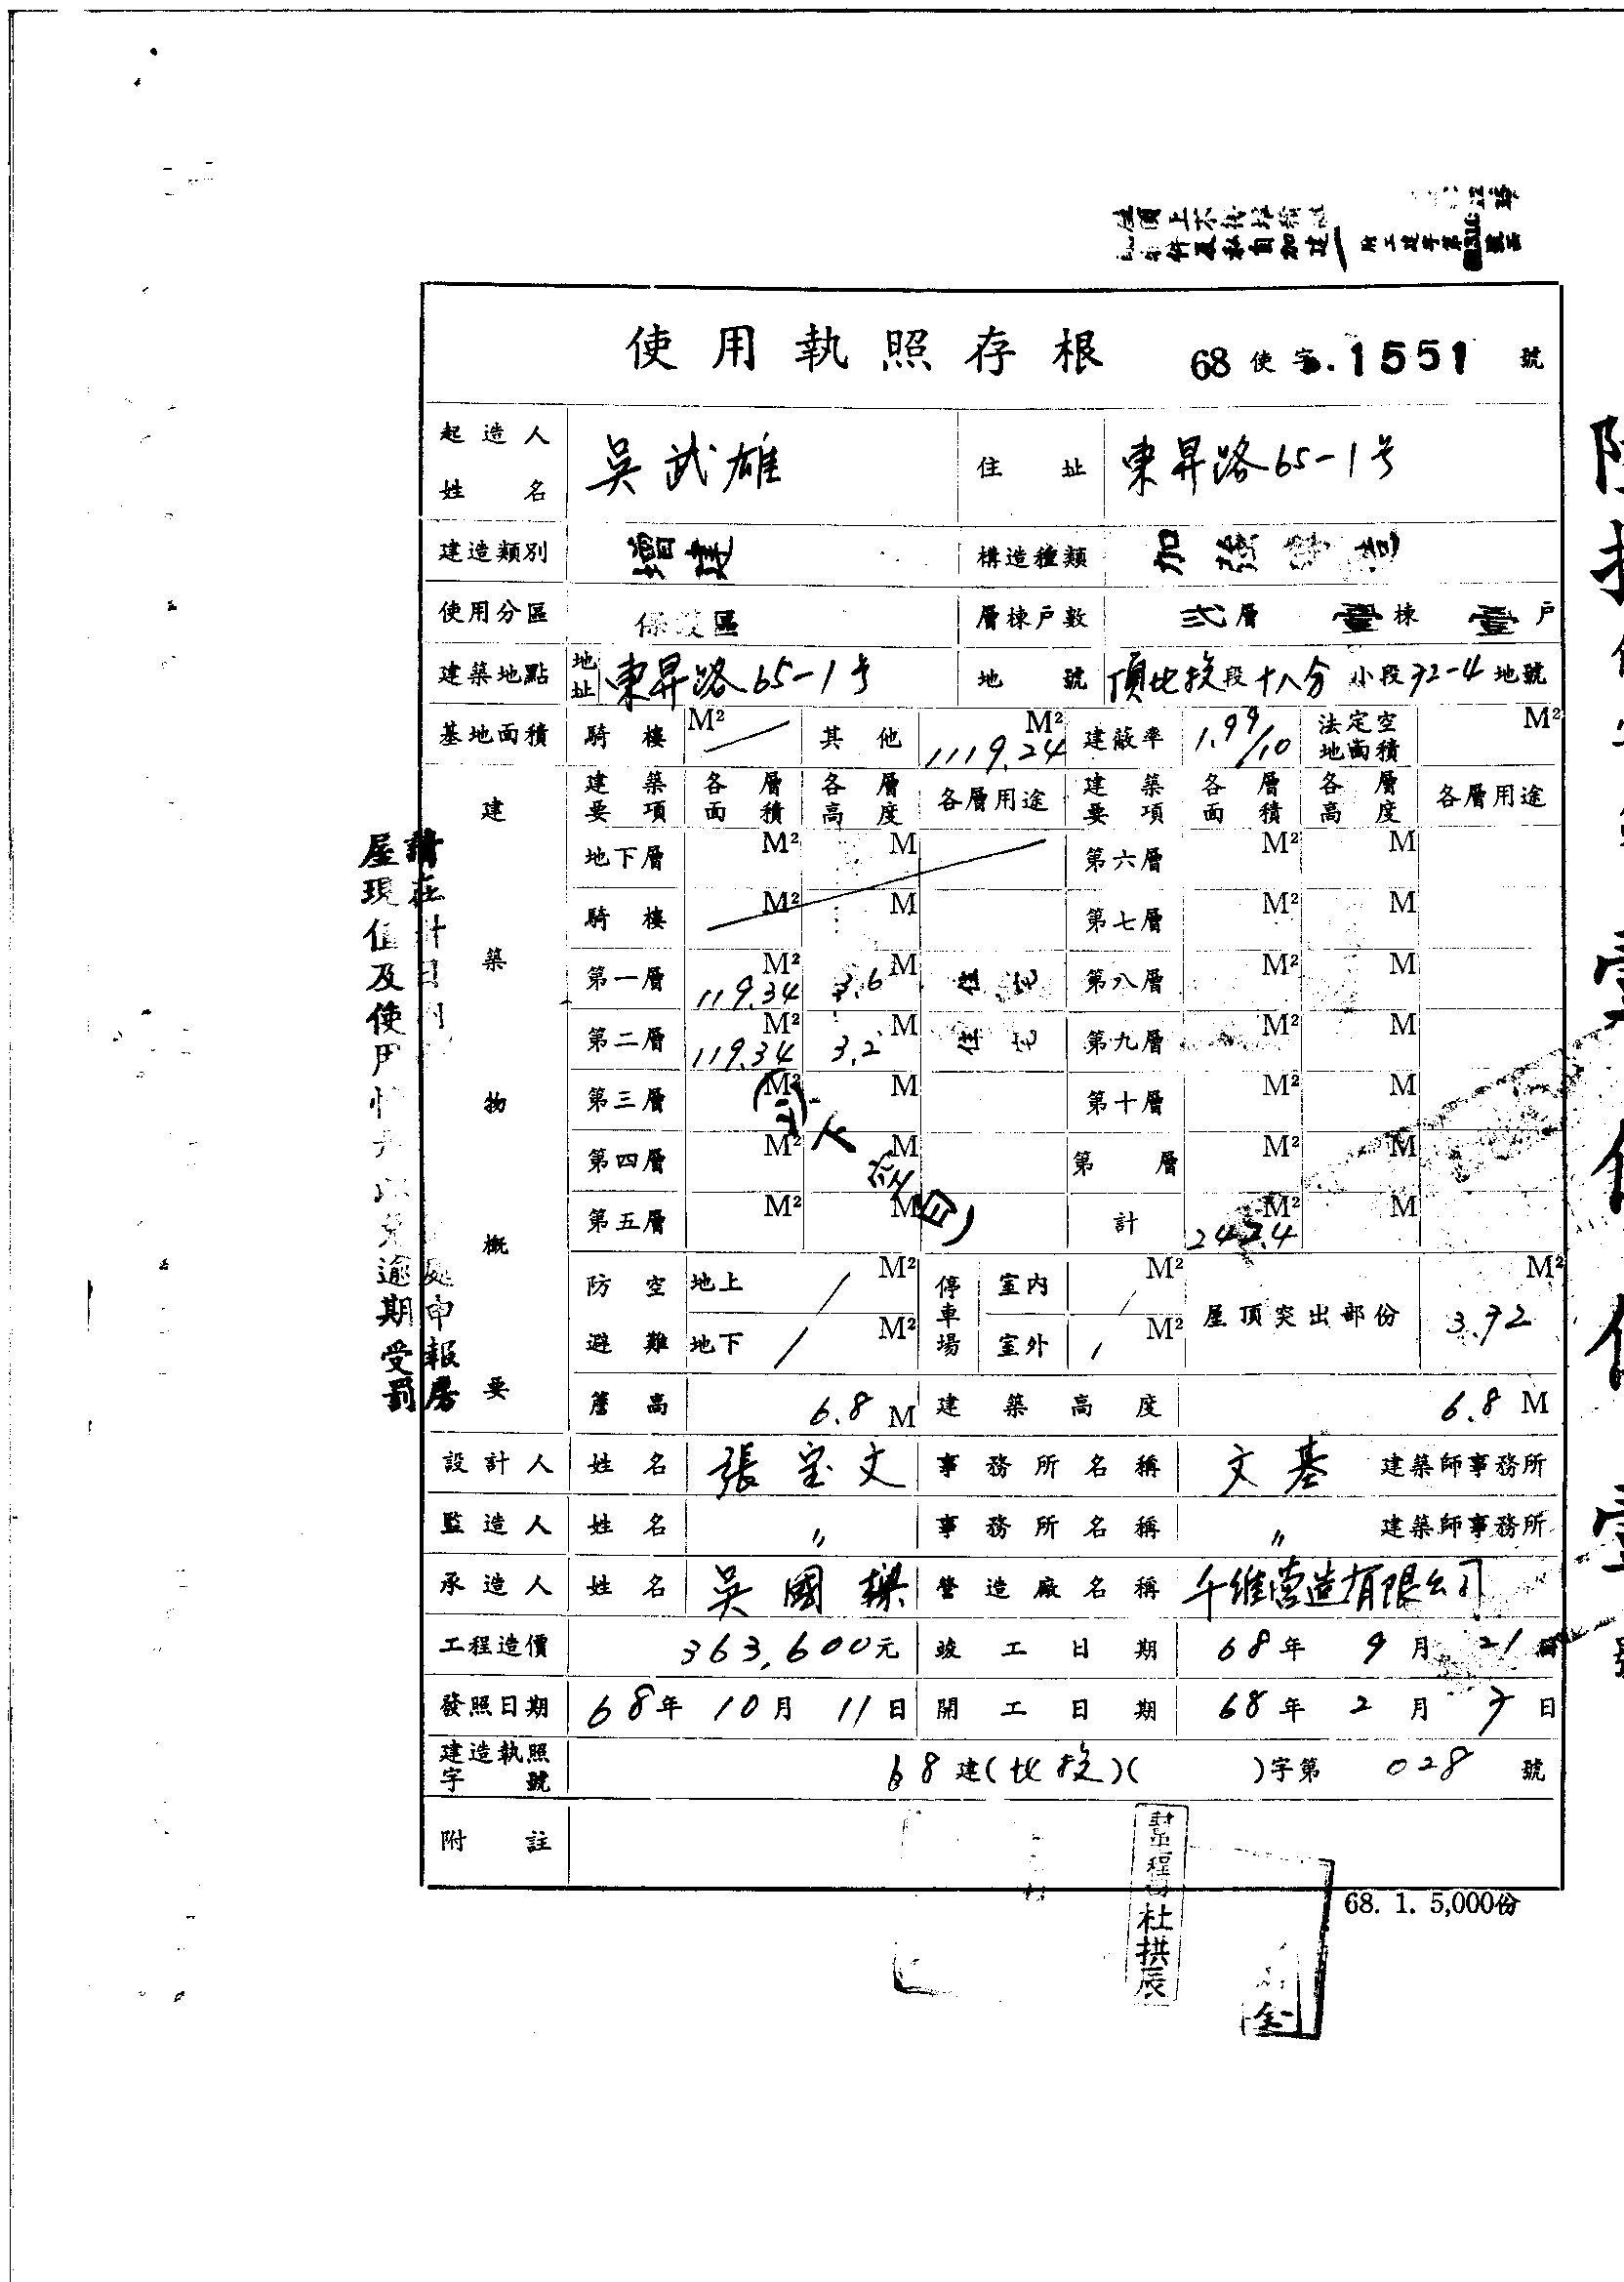 使用執照存根 68使字 1551 號
起造人姓名 吳武雄 住址 東昇路65-1号
建造類別 增建 構造種類 加強磚造
使用分區 保護區 層棟戶數 弍層 壹棟 壹戶
建築地點 地址 東昇路65-1号 地號 頂北投段十八分小段72-4地號
基地面積 騎樓 M² 其他 1119.24 M² 建蔽率 1.99/10 法定空地面積 M²
建築物概要
建築要項 各層面積 各層高度 各層用途 建築要項 各層面積 各層高度 各層用途
地下層 M² M 第六層 M² M
騎樓 M² M 第七層 M² M
第一層 119.34 M² 3.6 M 住宅 第八層 M² M
第二層 119.34 M² 3.2 M 住宅 第九層 M² M
第三層 M² M 第十層 M² M
第四層 M² M 第 層 M² M
第五層 M² M 計 242.4 M² M
(以下空白)
防空避難 地上 / M² 停車場 室內 / M² 屋頂突出部份 3.72 M²
地下 / M² 室外 / M²
簷高 6.8 M 建築高度 6.8 M
設計人 姓名 張宝文 事務所名稱 文基 建築師事務所
監造人 姓名 〃 事務所名稱 〃 建築師事務所
承造人 姓名 吳國樑 營造廠名稱 千維營造有限公司
工程造價 363,600元 竣工日期 68年9月21日
發照日期 68年10月11日 開工日期 68年2月7日
建造執照字號 68建(北投)( )字第 028 號
附註
68. 1. 5,000份
杜拱辰
屋現值及使用情
逾期受罰
處申報房